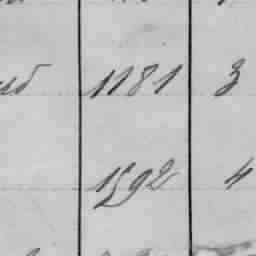 1181 3
1592 4